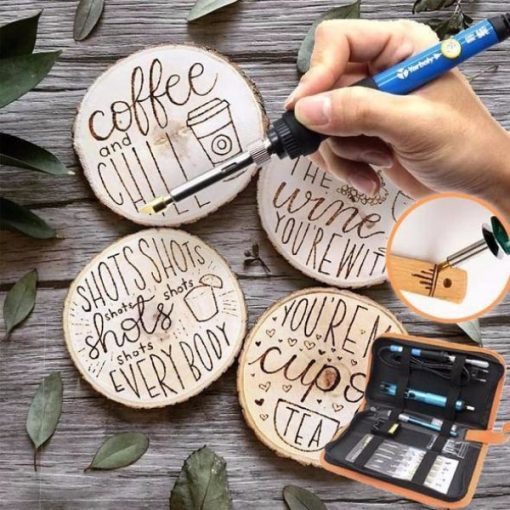 Yarboly
coffee
and
CHILL
THE
wine
YOU'RE WITH
SHOTS SHOTS
shots shots
shots
SHOTS
EVERYBODY
YOU'RE MY
cup
TEA